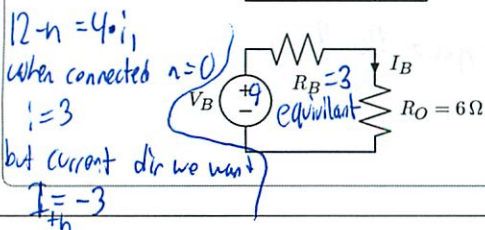 12-n = 4·i,
when connected n=0
i=3
but current dir we want
I = -3
th
V_B
+9
−
R_B=3
equivilant
I_B
R_O = 6 Ω